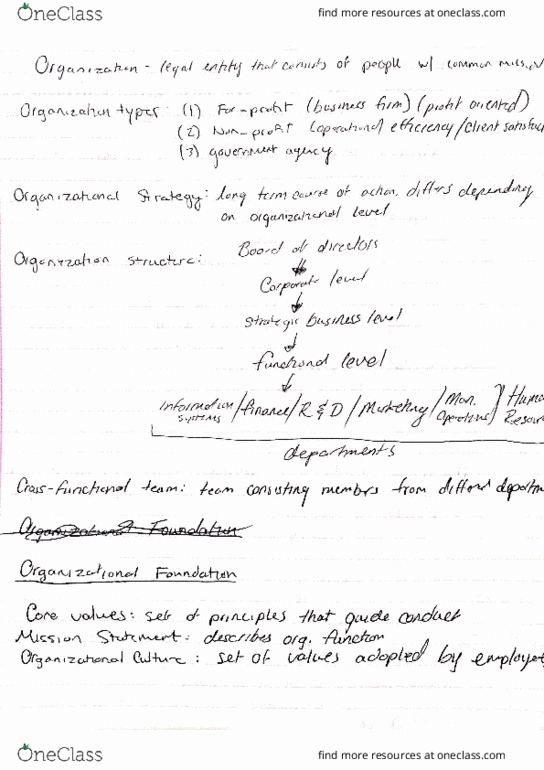 OneClass
find more resources at oneclass.com
Organization - legal entity that consists of people w/ common
Organization types: (1) For-profit (business firm) (profit oriented)
(2) Non-profit (operational efficiency/client satisfac
(3) government agency
Organizational Strategy: long term course of action, differs depending
on organizational level
Organization structure:
Board of directors
Corporate level
Strategic business level
functional level
Information Systems / finance / R & D / Marketing / Man. Operations / Human Resour
departments
Cross-functional team: team consisting members from different departm
Organizational Foundation
Organizational Foundation
Core values: set of principles that guide conduct
Mission Statement: describes org. function
Organizational Culture: set of values adopted by employe
OneClass
find more resources at oneclass.com